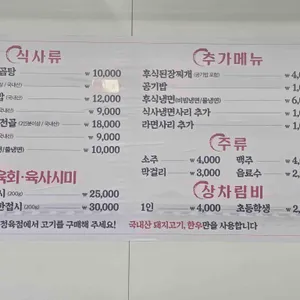 식사류
곰탕 ₩ 10,000
₩ 12,000
₩ 9,000
전골 ₩ 18,000
₩ 9,000
₩ 10,000
육회·육사시미
시 (200g) ₩ 25,000
한접시 (200g) ₩ 30,000
정육점에서 고기를 구매해 주세요!
추가메뉴
후식된장찌개 (공기밥 포함)
공기밥
후식냉면 (비빔냉면/물냉면)
식사냉면사리 추가
라면사리 추가
주류
소주 ₩ 4,000 맥주
막걸리 ₩ 3,000 음료수
상차림비
1인 ₩ 4,000 초등학생
국내산 돼지고기, 한우만을 사용합니다